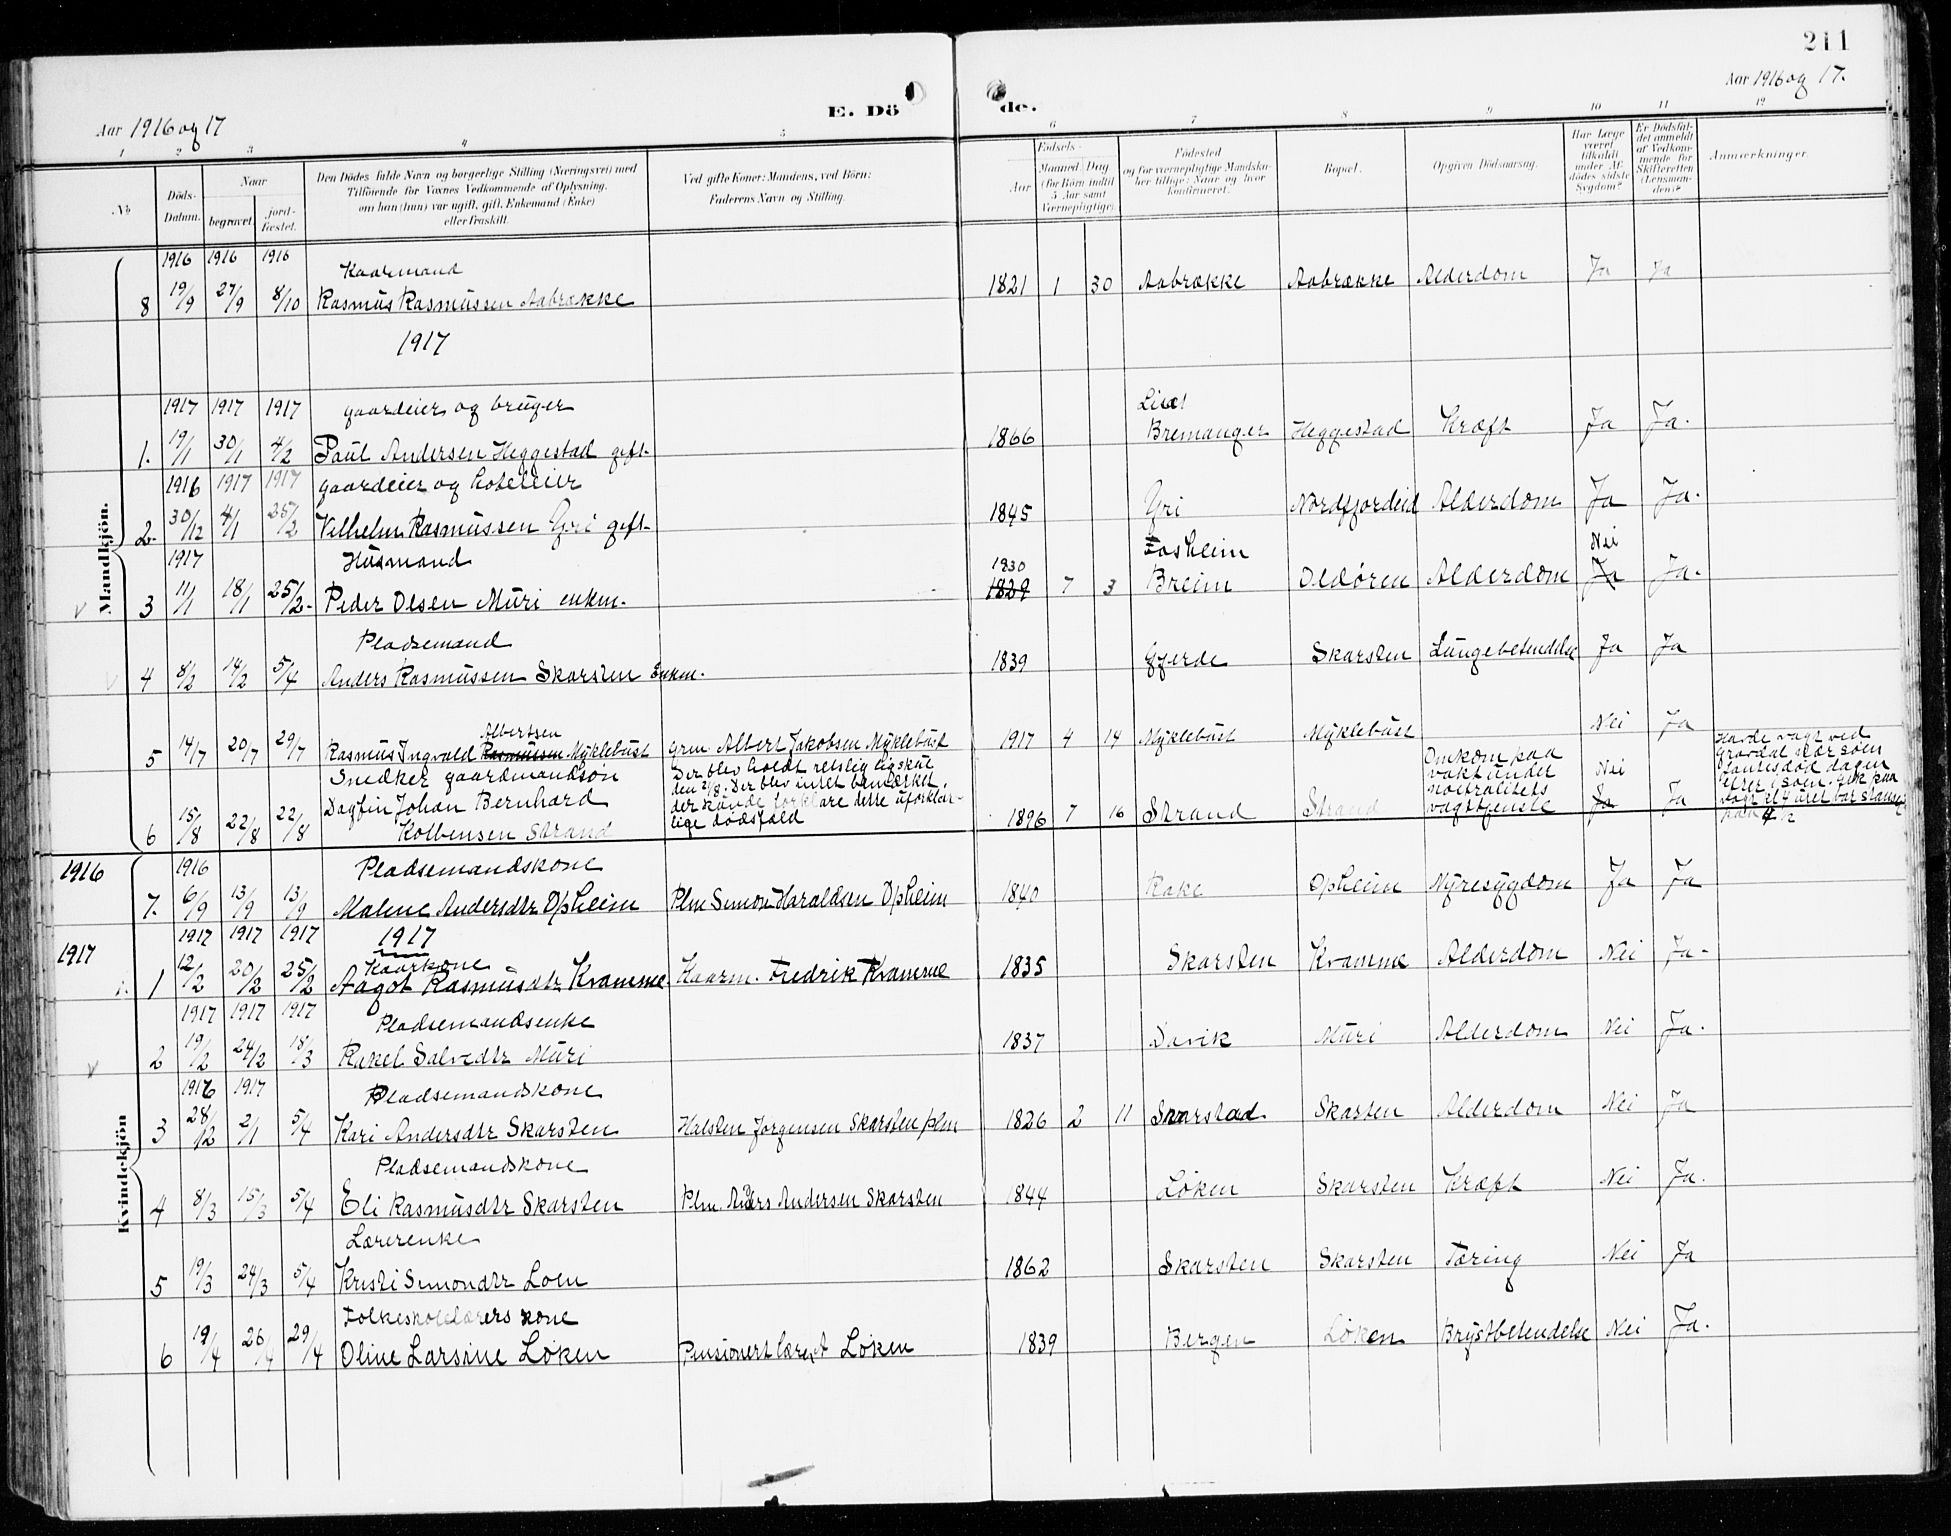 211
Aar 1916 og 17
E. Dö de.
Aar 1916 og 17.
1 2 3 4 5 6 7 8 9 10 11 12
No
Döds-Datum.
Naar
begravet
jordfæstet.
Den Dödes fulde Navn og borgerlige Stilling (Næringsvei) med
Tilföiende for Voxnes Vedkommende af Oplysning,
om han (hun) var ugift, gift, Enkemand (Enke)
eller fraskilt.
Ved gifte Koner: Mandens, ved Börn:
Faderens Navn og Stilling.
Födsels-
Aar
Maaned Dag
(for Börn indtil
5 Aar samt
Værnepligtige).
Födested
og for værnepligtige Mandska-
ber tillige: Naar og hvor
konfirmeret.
Bopæl.
Opgiven Dödsaarsag.
Har Læge
været
tilkaldt
under Af-
dödes sidste
Sygdom?
Er Dödsfal-
det anmeldt
af Vedkom-
mende for
Skifteretten
(Lensman-
den)?
Anmærkninger.
Mandkjön.
1916 1916 1916 Kaarmand
8 19/9 27/9 8/10 Rasmus Rasmussen Aabrække 1821 1 30 Aabrække Aabrække Alderdom Ja Ja
1917
1917 1917 1917 gaardeier og bruger
1. 19/1 30/1 4/2 Paul Andersen Heggestad gift- 1866 Bremanger Heggestad Kræft Ja Ja.
1916 1917 1917 gaardeier og hoteleier
2 30/12 4/1 25/2 Vilhelm Rasmussen Gri gift- 1845 Gri Nordfjordeid Alderdom Ja Ja.
1917 Husmand 1830 Fosheim Nei
3 11/1 18/1 25/2- Peder Olsen Muri enkm. 1829 7 3 Breim Oldøren Alderdom Ja Ja.
Pladsemand
4 8/2 14/2 5/4 Anders Rasmussen Skarsten Enkm. 1839 Gjerde Skarsten Lungebetendelse Ja Ja
Albertsen
5 14/7 20/7 29/7 Rasmus Ingvald Rasmussen Myklebust Grm. Albert Jakobsen Myklebust 1917 4 14 Myklebust Myklebust Nei Ja
Snedker gaardmandsøn
6 15/8 22/8 22/8 Dagfin Johan Bernhard
Kolbensen Strand
Der blev holdt retslig ligskue
den 21/8. Der blev intet bemærket,
der kunde forklare dette uforklar-
lige dødsfald
1896 7 16 Strand Strand
Omkom paa
vakt under
nøitralitets
vagttjeneste
Nei
Ja Ja
Havde vagt ved
Gravdal
dagen
paa
Kvindekjön
1916 1916 Pladsemandskone
7. 6/9 13/9 13/9 Malene Andersdtr Opheim Plm Simon Haraldsen Opheim 1840 Rake Opheim Nyresygdom Ja Ja
1917 1917 1917 1917 1917
Kaarkone
1 12/2 20/2 25/2 Aagot Rasmusdtr Kramme. Kaarm. Fredrik Kramme 1835 Skarsten Kramme Alderdom Nei Ja-
1917 1917 1917 Pladsemandsenke
2 19/2 24/2 18/3 Rakel Salvedtr Muri 1837 Davik Muri Alderdom Nei Ja.
1916 1917 Pladsemandskone
3 28/12 2/1 5/4 Kari Andersdtr Skarsten Halsten Jørgensen Skarsten plm 1826 2 11 Skarstad Skarsten Alderdom Nei Ja
Pladsemandskone
4 8/3 15/3 5/4 Eli Rasmusdtr Skarsten Plm. Anders Andersen Skarsten 1844 Løken Skarsten Kræft Nei Ja.
Lærerenke
5 19/3 24/3 5/4 Kristi Simondtr Loen 1862 Skarsten Skarsten Tæring Nei Ja
Folkeskolelærers kone
6 19/4 26/4 29/4 Oline Larsine Løken Pensionert lærer A Løken 1839 Bergen Løken Brystbetendelse Nei Ja.